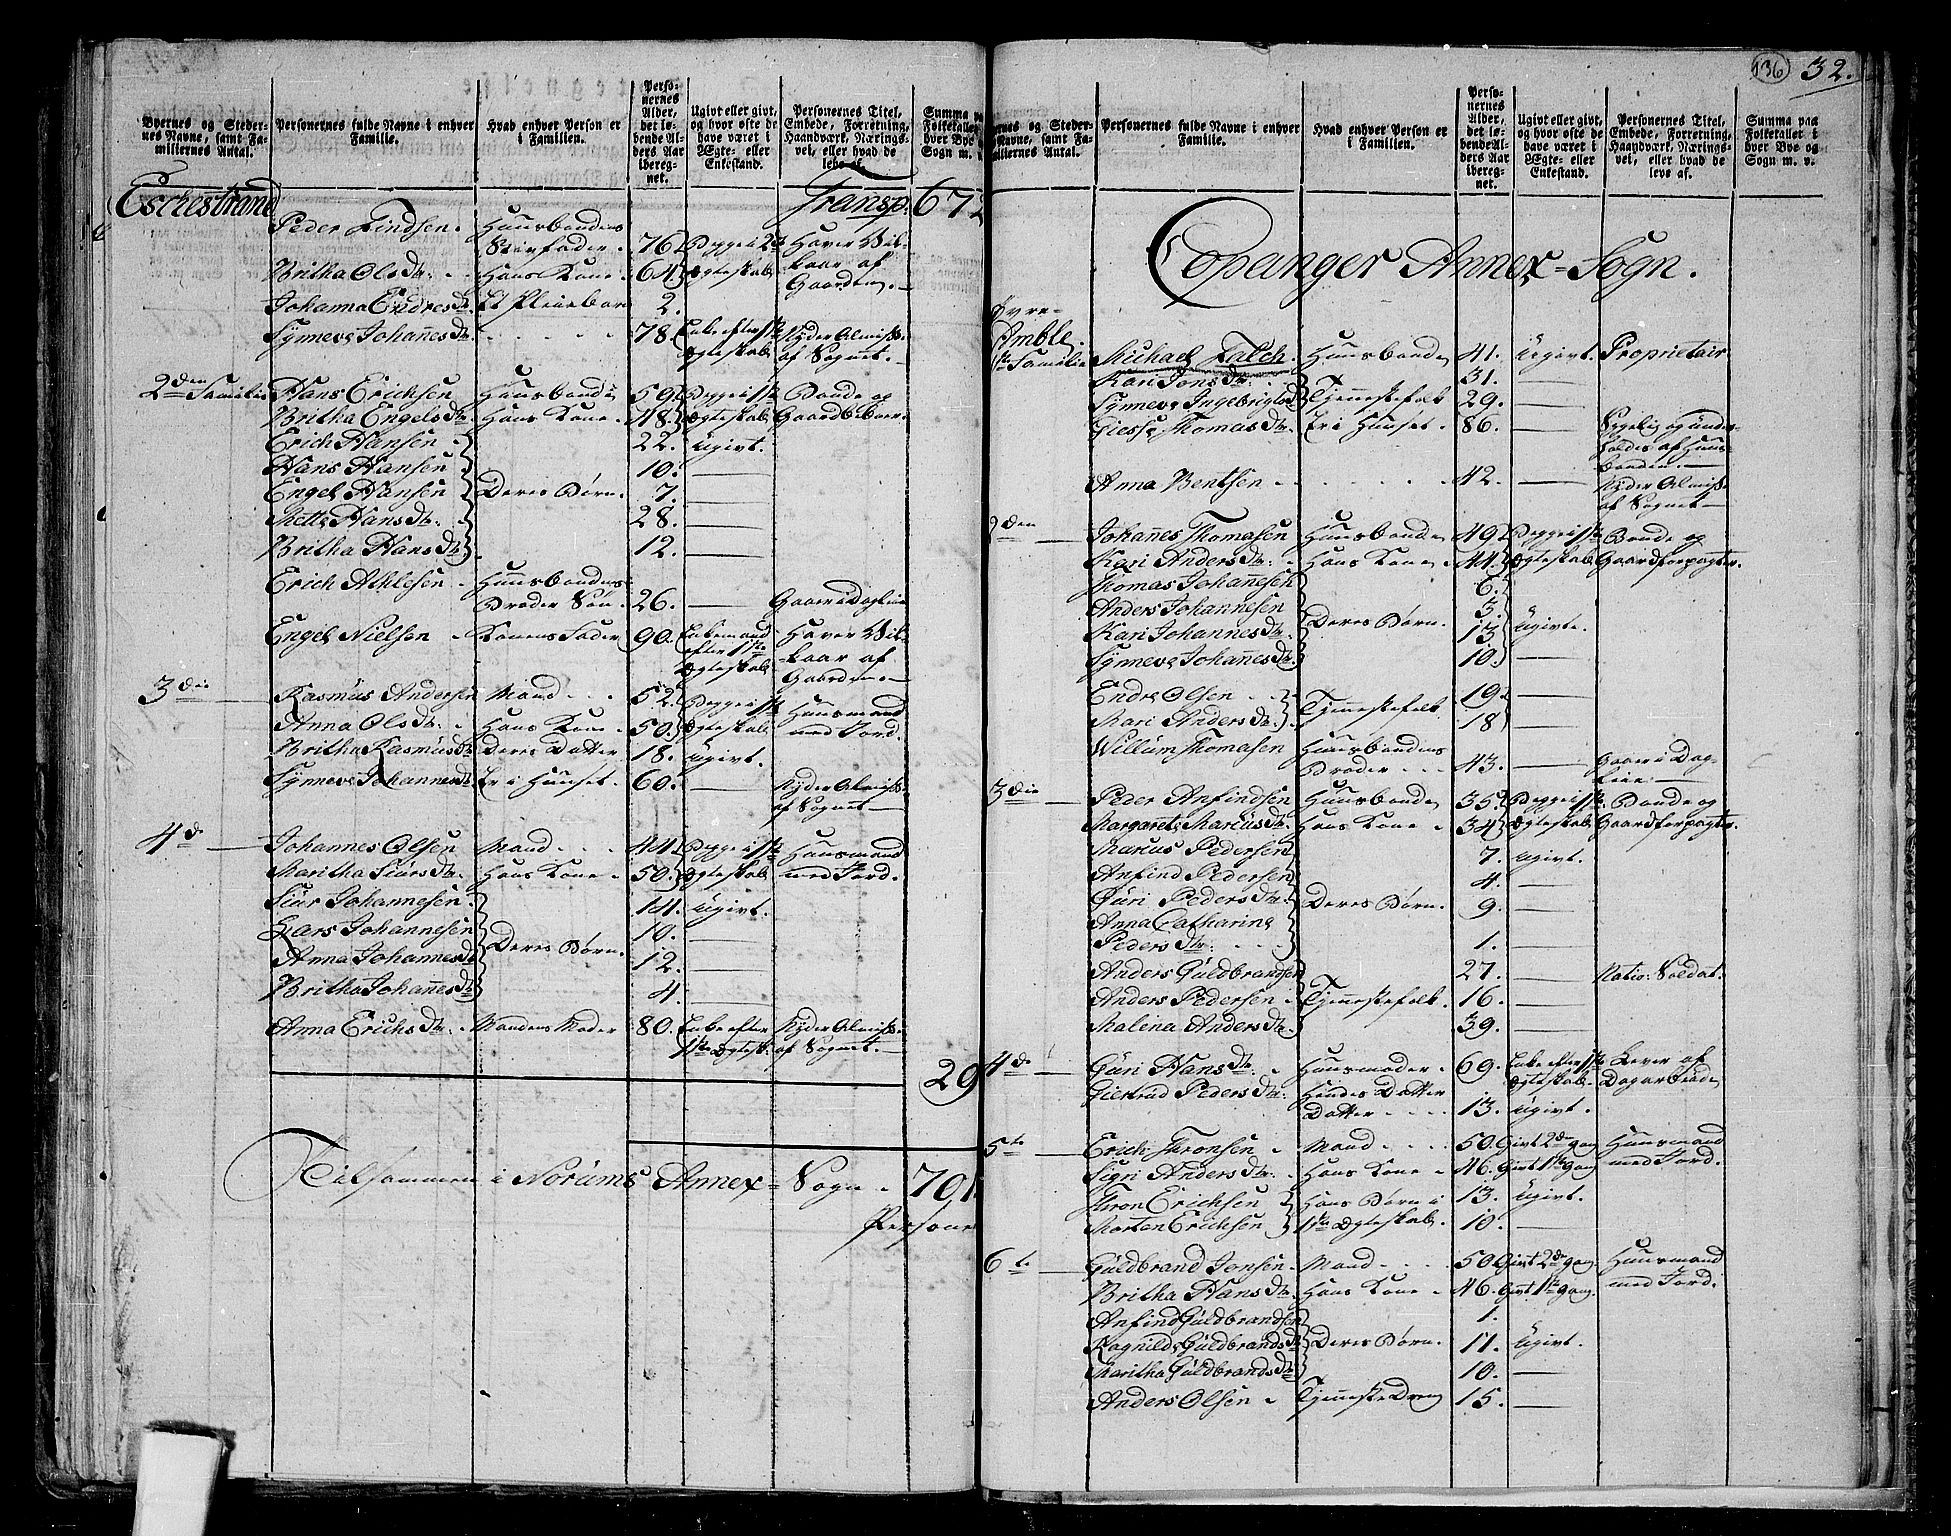 136
32.
Byernes og Stedernes Navne, samt Familiernes Antal.
Personernes fulde Navne i enhver Familie.
Hvad enhver Person er i Familien.
Personernes Alder, det løbende Alders Aar iberegnet.
Ugivt eller givt, og hvor ofte de have været i Ægte- eller Enkestand.
Personernes Titel, Embede, Forretning, Haandværk, Næringsvei, eller hvad de leve af.
Summa paa Folketallet i hver Bye og Sogn m. v.
Eschestrand Transp: 672
Peder Findsen. Huusbondens
Stivfader. 76. Begge i 2det Haver Vil-
Britha Olsdtr. Hans Kone. 64. Ægteskab kaar af
Gaarden.
Johanna Endresdtr Et Pleiebarn 2.
Synneve Johannesdtr. 78. Enke efter 1ste Nyder Almisse
Ægteskab af Sognet.
2den Familie Hans Erichsen Huusbonde 59. Begge i 1ste Bonde og
Britha Engelsdtr. Hans Kone. 48. Ægteskab Gaardbeboer.
Erich Hansen 22. Ugivt.
Hans Hansen 10.
Engel Hansen Deres Børn. 7.
Mette Hansdtr. 28.
Britha Hansdtr 12.
Erich Athlesen Huusbondens
Broder Søn. 26. Gaaer i Dagleie
Engel Nielsen Konens Fader 90. Enkemand Haver Vil-
efter 1ste kaar af
Ægteskab Gaarden.
3die Rasmus Andersen Mand 52. Begge i 1ste Huusmand
Anna Olsdtr. Hans Kone 50. Ægteskab med Jord.
Britha Rasmusdtr Deres Datter 18. Ugivt.
Synneve Johannesdtr Er i Huuset. 60. Nyder Almisse
af Sognet
4de Johannes Olsen Mand 44. Begge i 1ste Huusmand
Maritha Siursdtr. Hans Kone. 50. Ægteskab med Jord.
Siur Johannesen 14. Ugivt.
Lars Johannesen 10.
Anna Johannesdtr Deres Børn. 12.
Britha Johanesdtr 4.
Anna Erichsdtr. Mandens Moder 80. Enke efter Nyder Almisse
1ste Ægtesk: af Sognet.
29
Tilsammen i Norums Annex-Sogn. 701
Persone
Byernes og Stedernes Navne, samt Familiernes Antal.
Personernes fulde Navne i enhver Familie.
Hvad enhver Person er i Familien.
Personernes Alder, det løbende Alders Aar iberegnet.
Ugivt eller givt, og hvor ofte de have været i Ægte- eller Enkestand.
Personernes Titel, Embede, Forretning, Haandværk, Næringsvei, eller hvad de leve af.
Summa paa Folketallet i hver Bye og Sogn m. v.
Copanger Annex-Sogn.
Øvre-
Amble.
1ste Familie Michael Falch. Huusbonde 41. Ugivt. Proprietair
Kari Jonsdtr. 31.
Synneve Ingebrigtsdtr Tjenestefolk 29.
Giesse Thomasdtr. Er i Huuset. 86. Sygelig og under-
holdes af Huus-
bonden.
Anna Bentsen 42. Nyder Almisse
af Sognet
2den Johannes Thomasen Huusbonde 49. Begge i 1ste Bonde og
Kari Andersdtr. Hans Kone 44. Ægteskab Gaardforpagter.
Thomas Johannesen 6.
Anders Johannesen 5.
Kari Johannesdtr. Deres Børn. 13 Ugivte.
Synneve Johannesdtr. 10.
Endre Olsen 19.
Mari Andersdtr. Tjenestefolk 18
Willum Thomasen Huusbondens
Broder 43. Gaaer i Dag-
leie.
3die Peder Anfindsen Huusbonde 35. Begge i 1ste Bonde og
Margarete Marcusdtr. Hans Kone 34. Ægteskab Gaardforpagter.
Marcus Pedersen 7. Ugivt.
Anfind Pedersen 4.
Guri Pedersdtr. Deres Børn. 9.
Anna Catharina
Pedersdtr. 1.
Anders Guldbrandsen 27. Natio: Soldat.
Anders Pedersen Tjenestefolk. 16.
Malena Andersdtr. 39.
4de Guri Hansdtr. Huusmoder 69. Enke efter 1ste Lever af
Ægteskab. Dagarbeide
Giertrud Pedersdtr. Hendes Datter
Datter 13. Ugivt.
5te Erich Thronsen Mand 50. Givt 2den gang Huusmand
Sigri Andersdtr. Hans Kone 46. Givt 1ste gang med Jord.
Thron Erichsen Hans Børn i 13. Ugivt.
Morten Erichsen 1ste Ægteskab. 10.
6te Guldbrand Jonsen Mand 50. Givt 2den gang. Huusmand
Britha Hansdtr. Hans Kone 46. Givt 1ste gang. med Jord.
Anfind Guldbrandsen 1.
Ragnilde Guldbrandsdtr Deres Børn. 11. Ugivt.
Maritha Guldbrandsdtr 10.
Anders Olsen Tjeneste Dreng 15.